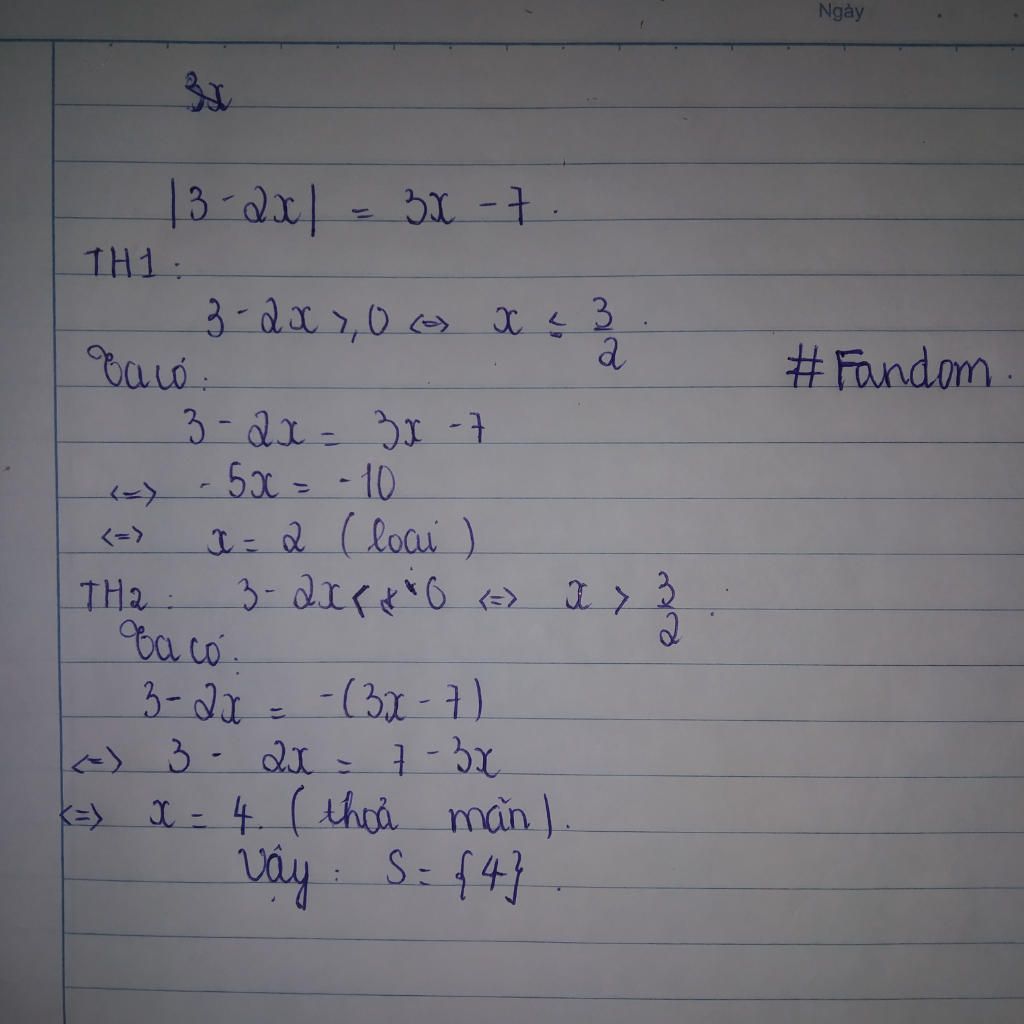 Ngày
3x
|3 - 2x| = 3x - 7.
TH1:
3 - 2x ≥ 0 <=> x ≤ 3/2.
Ta có:
#Fandom.
3 - 2x = 3x - 7
<=> -5x = -10
<=> x = 2 (loại)
TH2: 3 - 2x < 0 <=> x > 3/2.
Ta có:
3 - 2x = -(3x - 7)
<=> 3 - 2x = 7 - 3x
<=> x = 4. (thoả mãn).
Vậy: S = {4}.